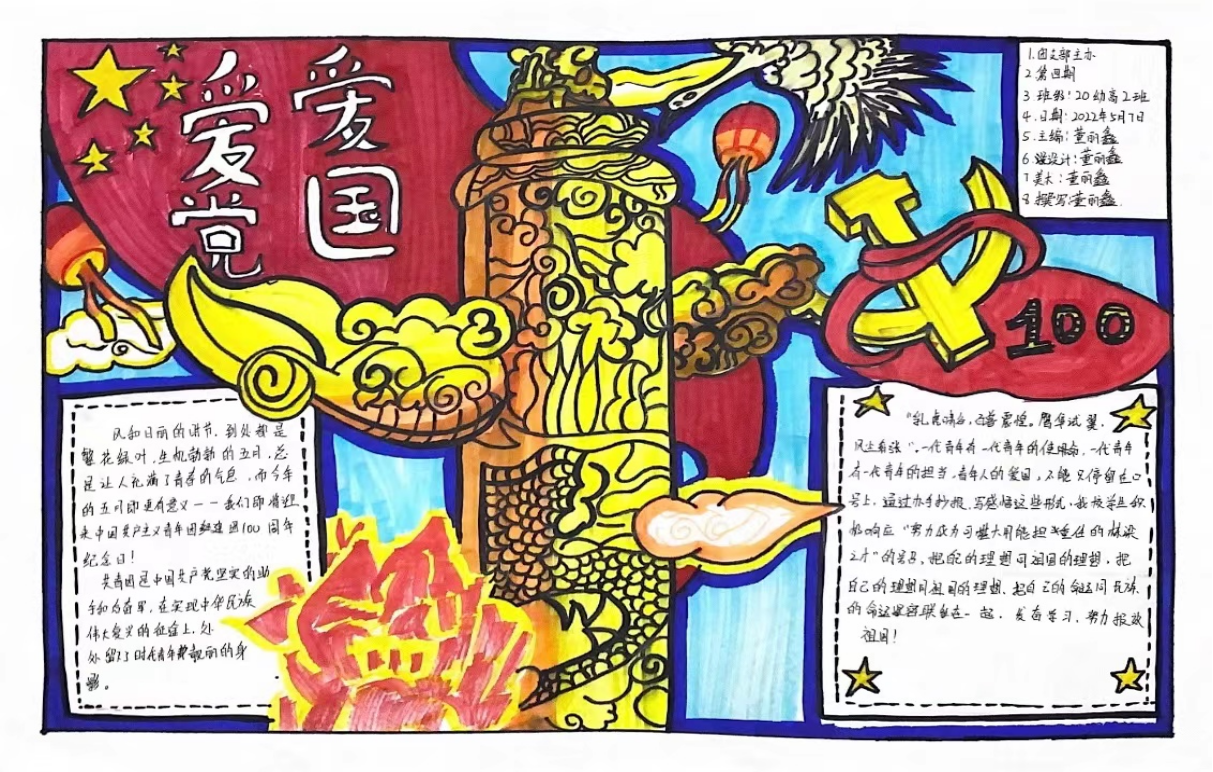 爱国
爱党
1.团支部主办
2.第四期
3.班级:20幼高2班
4.日期:2022年5月7日
5.主编:董丽鑫
6.设计:董丽鑫
7.美术:董丽鑫
8.撰写:董丽鑫.
100
风和日丽的时节,到处都是
繁花绿叶,生机勃勃的五月,总
是让人充满了青春的气息,而今年
的五月即更有意义——我们即将迎
来中国共产主义青年团组建团100周年
纪念日!
共青团是中国共产党坚实的助
手和后备军,在实现中华民族
伟大复兴的征途上,处
处留下了时代青年靓丽的身
影。
"乳虎啸谷,百兽震惶。鹰隼试翼,
风尘翕张"。一代青年有一代青年的使命,一代青年
有一代青年的担当,青年人的爱国,不能只停留在口
号上,通过办手抄报、写感悟这些形式,我校学生积
极响应"努力成为可堪大用能担重任的栋梁
之才"的号召,把我的理想同祖国的理想,把
自己的理想同祖国的理想、把自己的命运同民族
的命运紧密联系在一起,发奋学习,努力报效
祖国!